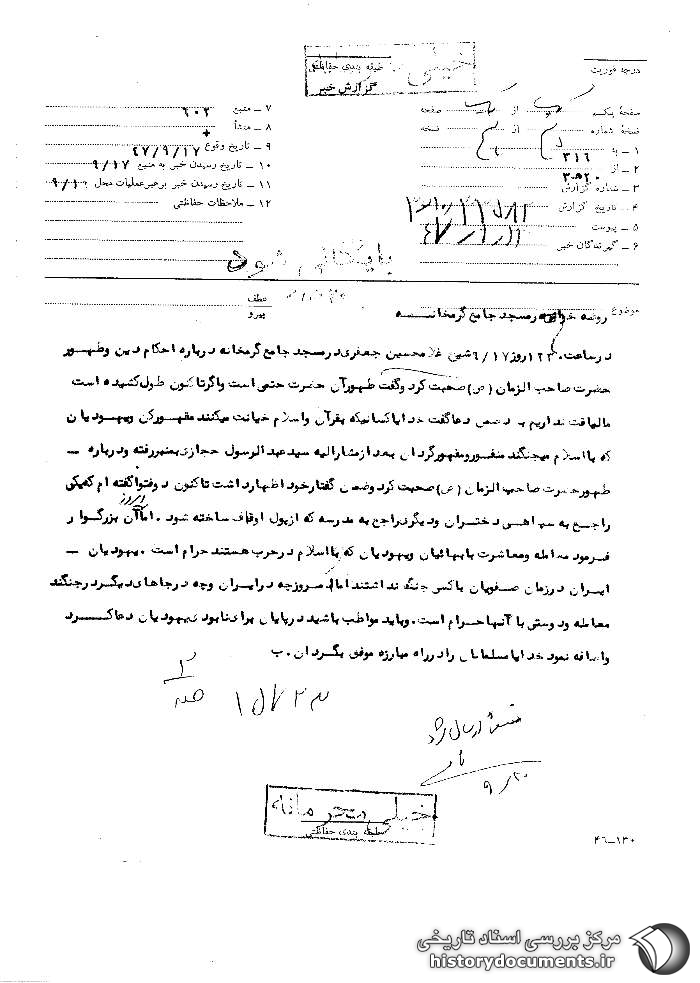 خیلی
طبقه بندی حفاظتی
گزارش خبر
درجه فوریت
صفحهٔ یک از یک صفحه
نسخهٔ شماره از نسخه
۱ ـ به ۳۱۶
۲ ـ از
۳ ـ شماره گزارش
۴ ـ تاریخ گزارش
۵ ـ پیوست
۶ ـ گیرندگان خبر
۷ ـ منبع ۶۰۲
۸ ـ منشأ +
۹ ـ تاریخ وقوع ۴۷/۹/۱۷
۱۰ ـ تاریخ رسیدن خبر به منبع ۹/۱۷
۱۱ ـ تاریخ رسیدن خبر برهبر عملیات محل
۱۲ ـ ملاحظات حفاظتی
بایگانی شود
عطف
پیرو
موضوع روضه خوانی در مسجد جامع گرمخانه
در ساعت روز ۱۷ غلامحسین جعفری در مسجد جامع گرمخانه درباره احکام دین وظهور
حضرت صاحب الزمان (ص) صحبت کرد وگفت ظهور آن حضرت حتمی است واگر تاکنون طول کشیده است
مالیاقت نداریم در ضمن دعا گفت خدایا کسانیکه بقرآن واسلام خیانت میکنند مقهور کن ویهودیان
که با اسلام میجنگند ومقهور گردان بعد از مشارالیه سید عبدالرسول حجازی بمنبر رفته و درباره ـ
ظهور حضرت صاحب الزمان (ص) صحبت کرد وضمن گفتار خود اظهار داشت تاکنون دو فتوا گفته ام که یکی
راجع به سپاهی دختران و دیگری راجع به مدرسه که از پول اوقاف ساخته شود . اما امروز آن بزرگوار
فرمود معامله ومعاشرت با بهائیان ویهودیان که با اسلام در حرب هستند حرام است . یهودیان ـ
ایران در زمان صفویان با کسی جنگ نداشتند اما امروز چه در ایران وچه در جاهای دیگر در جنگند
معامله ودوستی با آنها حرام است . وباید مواظب باشید در پایان برای نابودی یهودیان دعا کرد
واضافه نمود خدایا مسلمانان را در راه مبارزه موفق بگردان . ب
۹/۲۰
خیلی محرمانه
طبقه بندی حفاظتی
۴۶-۱۳۰
مرکز بررسی اسناد تاریخی
historydocuments.ir